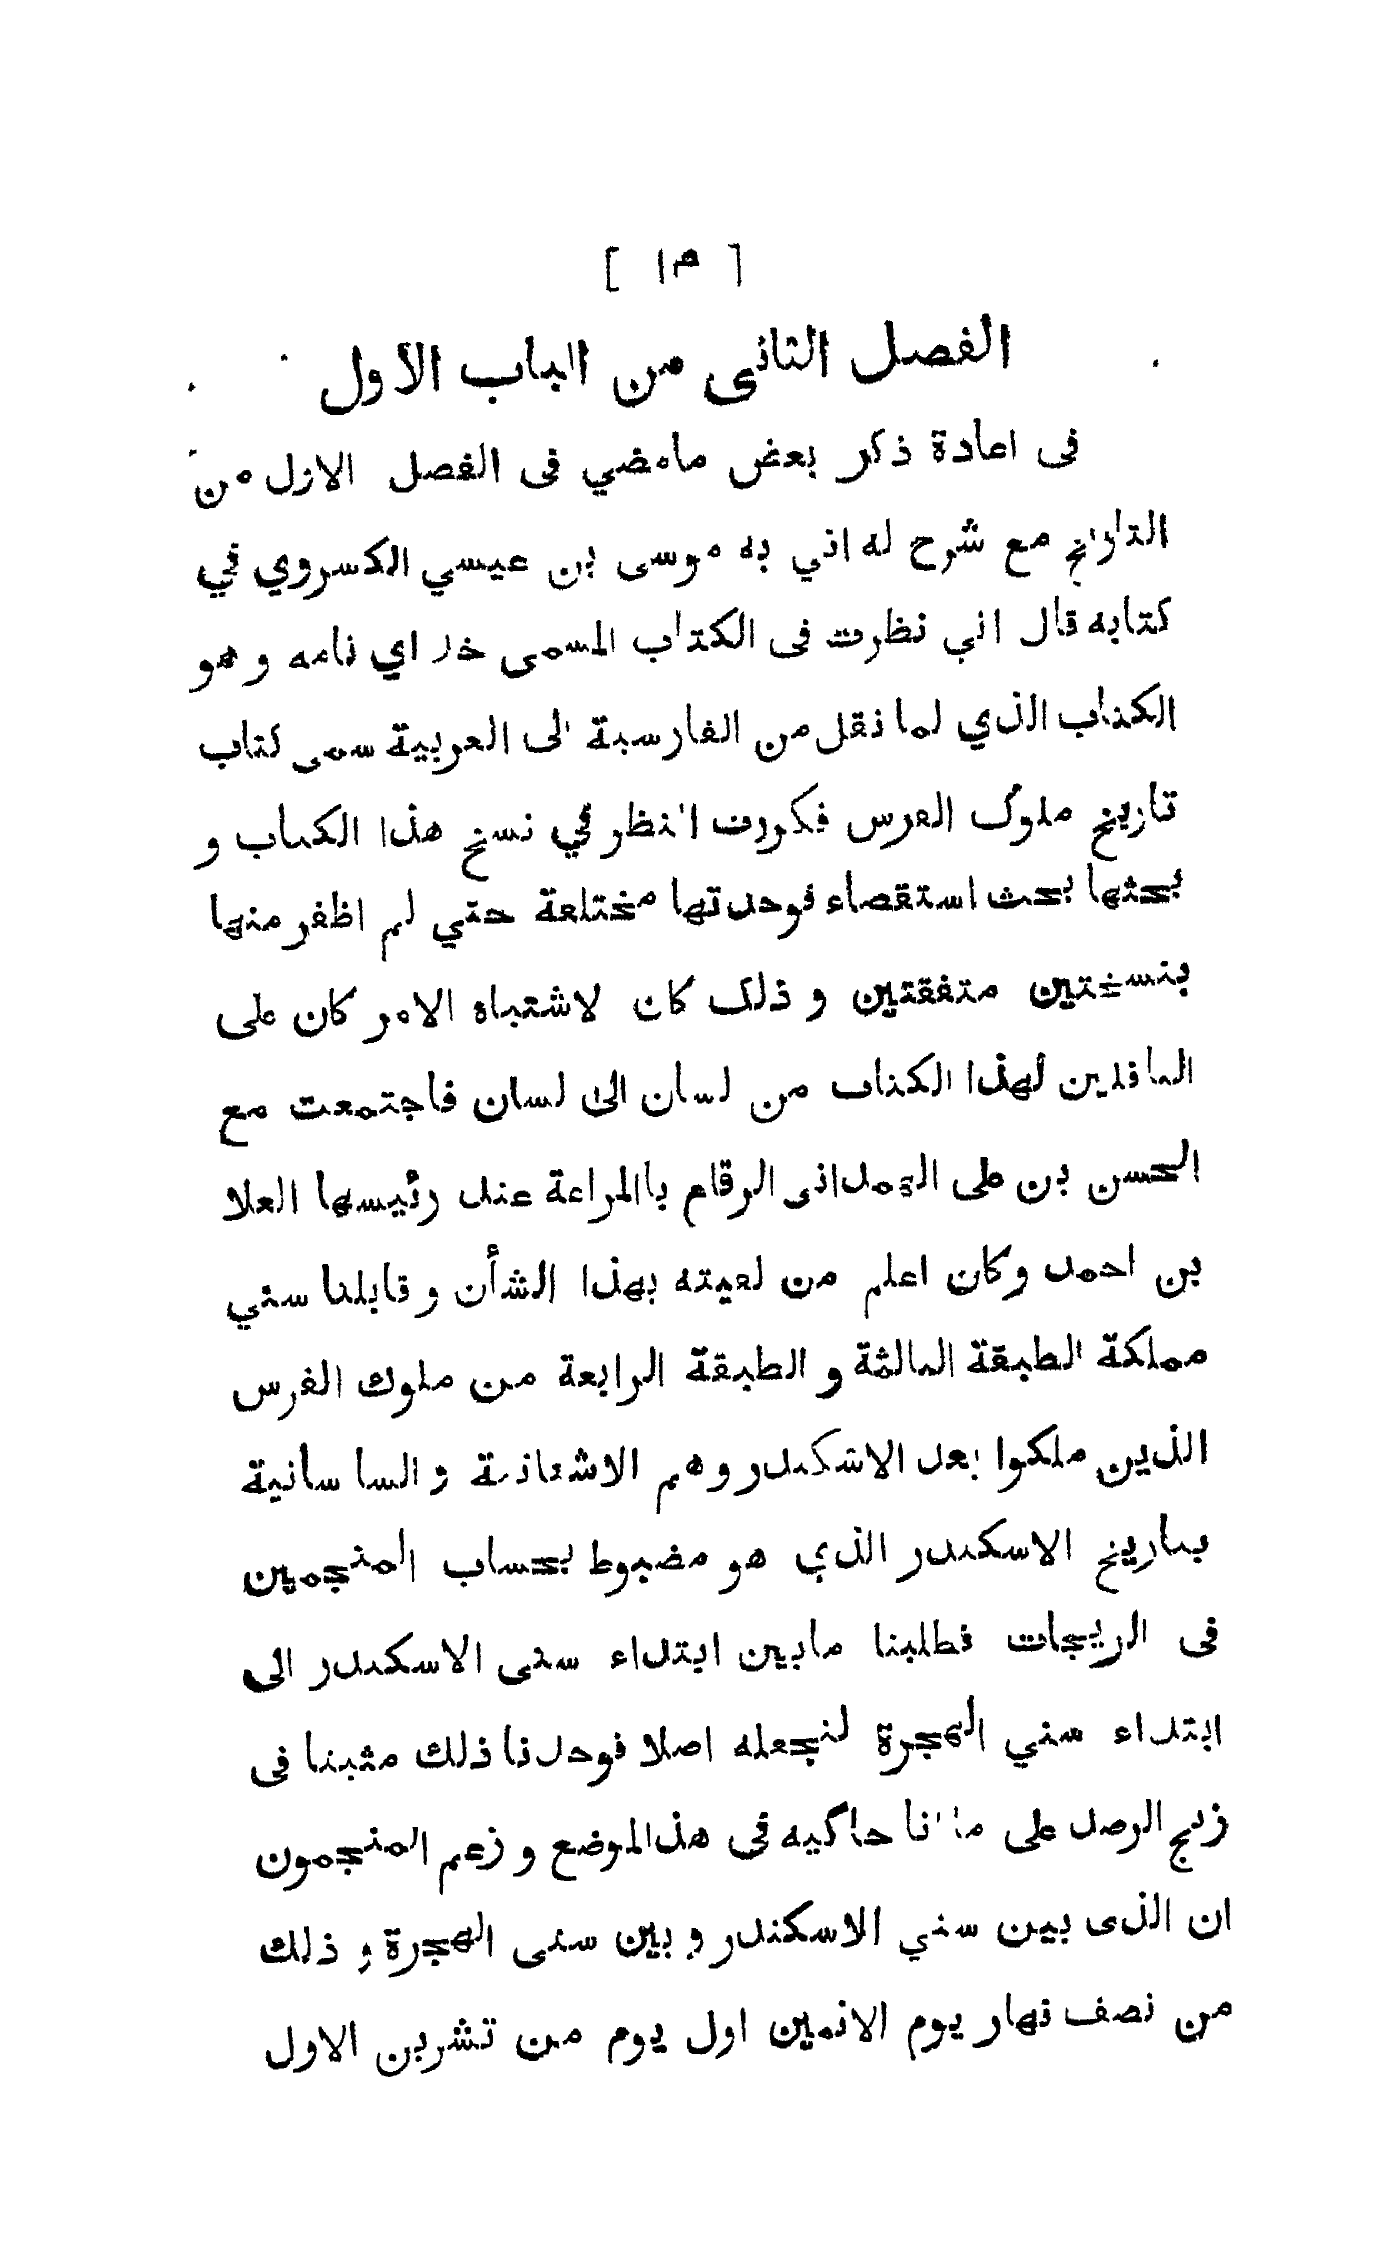 [ ١٣ ]
الفصل الثانى من الباب الأول
فى اعادة ذكر بعض مامضي فى الفصل الاول من
التاريخ مع شرح له اتي به موسى بن عيسي الكسروي في
كتابه قال اني نظرت فى الكتاب المسمى خداي نامه وهو
الكتاب الذي لما نقل من الفارسية الى العربية سمى كتاب
تاريخ ملوك الفرس فكررت النظر في نسخ هذا الكتاب و
بحثها بحث استقصاء فوجدتها مختلفة حتي لم اظفر منها
بنسختين متفقتين و ذلك كان لاشتباه الامر كان على
الناقلين لهذا الكتاب من لسان الى لسان فاجتمعت مع
الحسن بن على الهمدانى الرقام باالمراغة عند رئيسها العلا
بن احمد وكان اعلم من لقيته بهذا الشأن و قابلنا سني
مملكة الطبقة الثالثة و الطبقة الرابعة من ملوك الفرس
الذين ملكوا بعد الاشكندر وهم الاشغانية و السا سانية
بتاريخ الاسكندر الذي هو مضبوط بحساب المنجمين
فى الزيجات فطلبنا مابين ابتداء سنى الاسكندر الى
ابتداء سني الهجرة لنجعله اصلا فوجدنا ذلك مثبتا فى
زيج الرصد على ما انا حاكيه فى هذالموضع و زعم المنجمون
ان الذى بين سني الاسكندر و بين سنى الهجرة و ذلك
من نصف نهار يوم الاثنين اول يوم من تشرين الاول